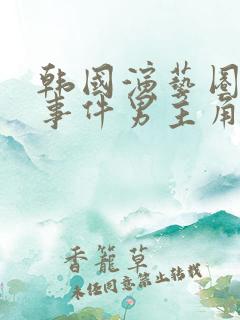 韩国演艺圈
事件男主角
香笼草
未经同意禁止转载